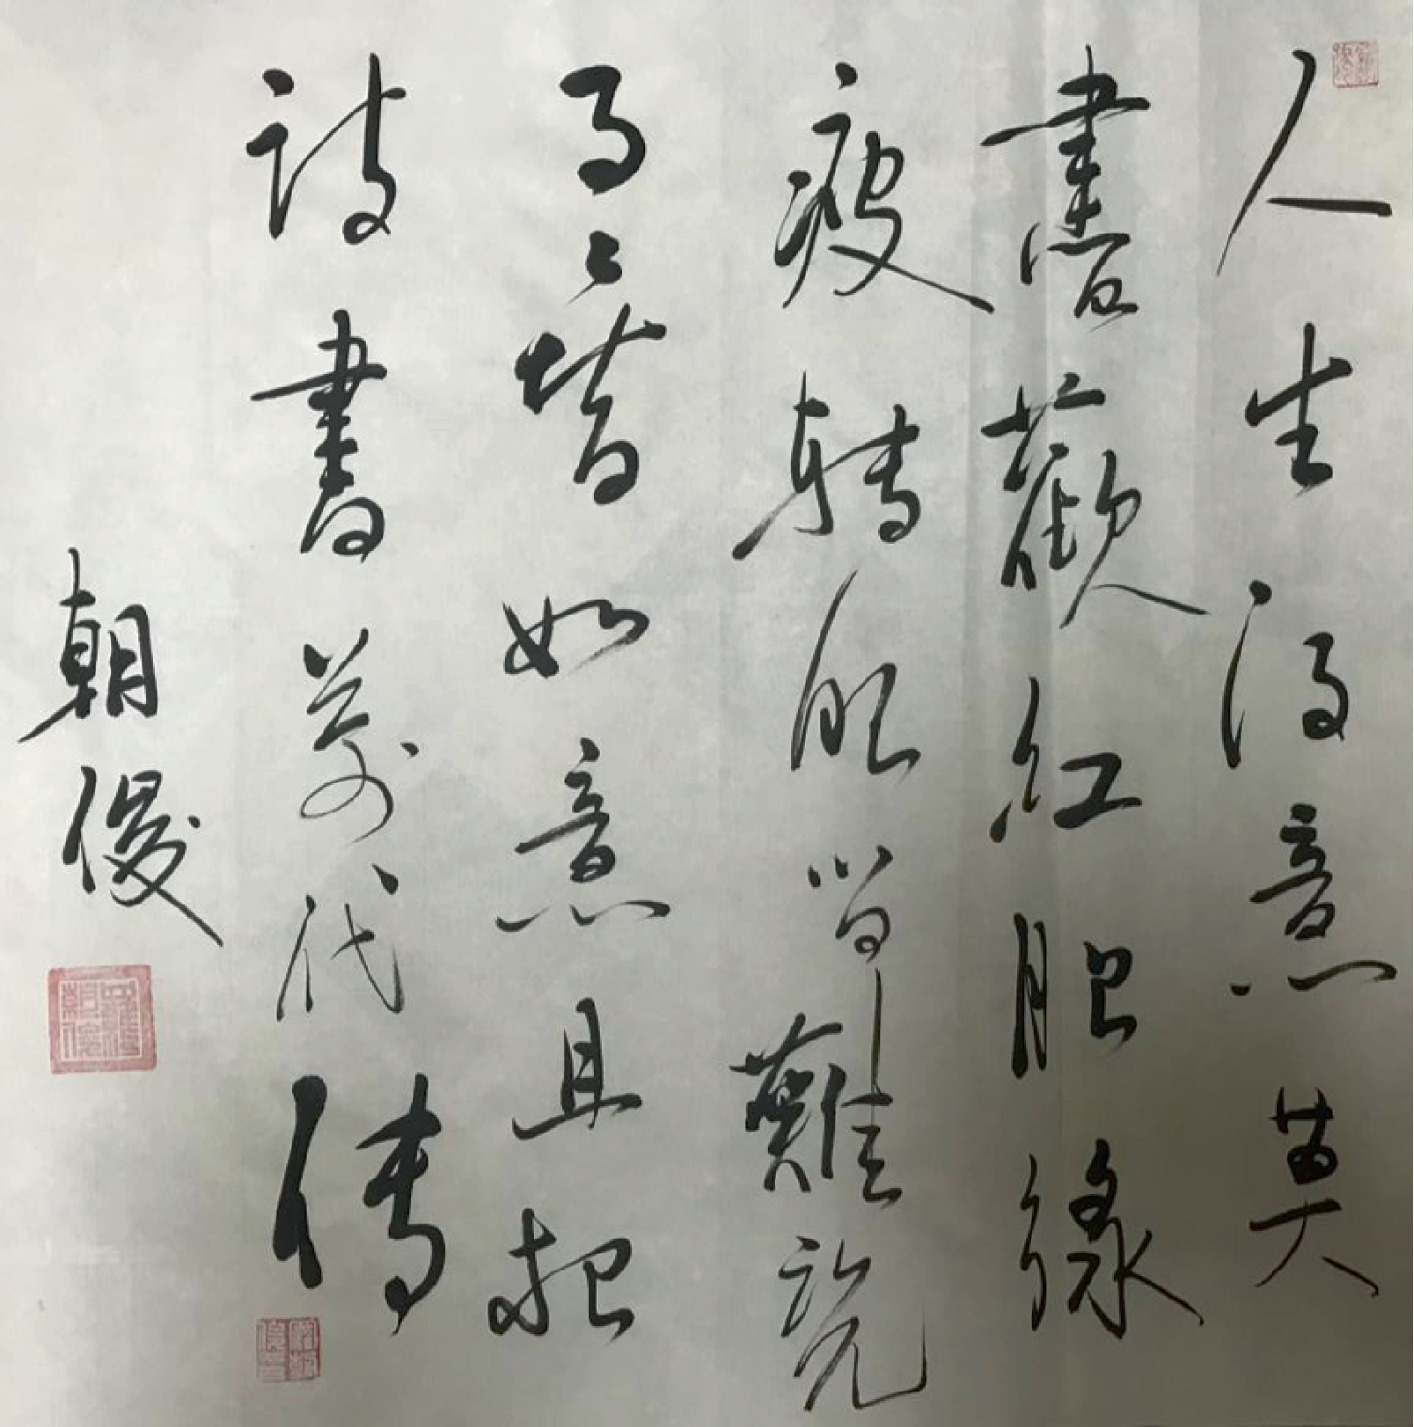 人生得意莫
盡歡紅肥綠
瘦轉眼間難説
事事皆如意且把
詩書萬代傳
朝俊